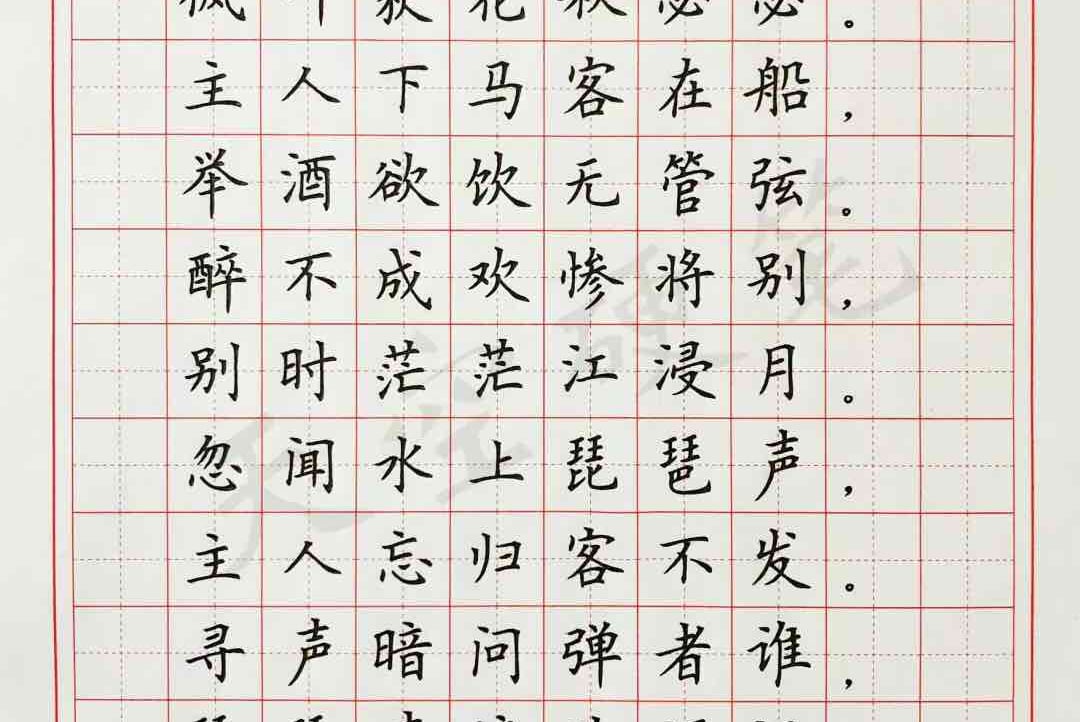 枫叶荻花秋瑟瑟。
主人下马客在船，
举酒欲饮无管弦。
醉不成欢惨将别，
别时茫茫江浸月。
忽闻水上琵琶声，
主人忘归客不发。
寻声暗问弹者谁，